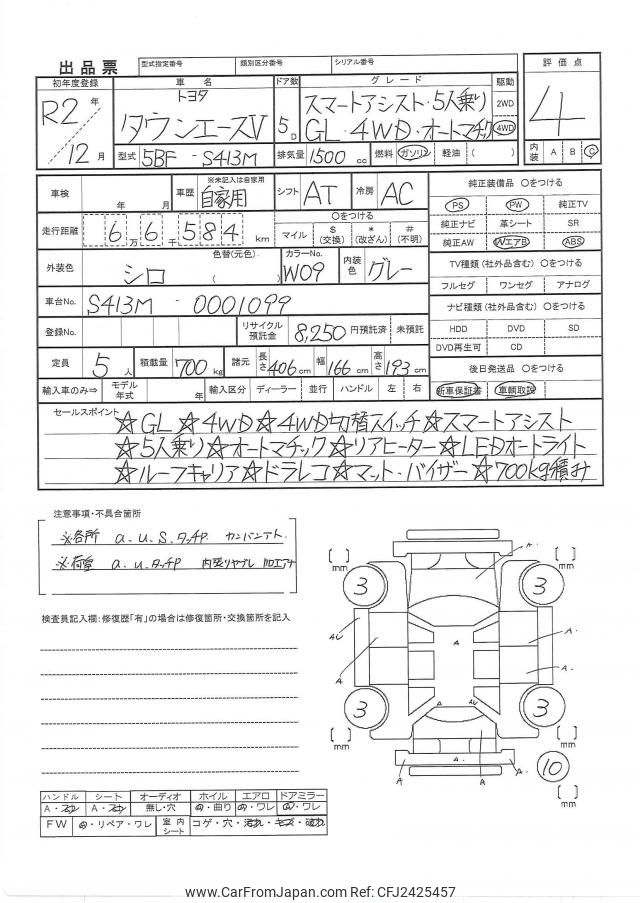 出品票
型式指定番号 類別区分番号 シリアル番号
初年度登録 車名 ドア数 グレード 駆動 評価点
R2年 トヨタ スマートアシスト・5人乗り 2WD 4
タウンエースV 5D GL・4WD・オートマチック 4WD
12月 型式 5BF - S413M 排気量 1500 cc 燃料 ガソリン ・ 軽油 ( ) 内装 A B C
車検 年 月 車歴 ※未記入は自家用 自家用 シフト AT 冷房 AC 純正装備品 〇をつける
PS PW 純正TV
走行距離 6 万 6 千 5 8 4 km 〇をつける
マイル $ (交換) * (改ざん) # (不明) 純正ナビ 革シート SR
純正AW WエアB ABS
外装色 シロ 色替(元色) ( ) カラーNo. W09 内装色 グレー TV種類(社外品含む) 〇をつける
フルセグ ワンセグ アナログ
車台No. S413M - 0001099 ナビ種類(社外品含む) 〇をつける
登録No. リサイクル預託金 8,250 円預託済 未預託 HDD DVD SD
DVD再生可 CD
定員 5人 積載量 700kg 諸元 長さ 406cm 幅 166cm 高さ 193cm 後日発送品 〇をつける
輸入車のみ⇒ モデル年式 年 輸入区分 ディーラー ・ 並行 ハンドル 左 ・ 右 新車保証書 車輌取説
セールスポイント ☆GL☆4WD☆4WD切替スイッチ☆スマートアシスト
☆5人乗り☆オートマチック☆リアヒーター☆LEDオートライト
☆ルーフキャリア☆ドラレコ☆マット・バイザー☆700kg積み
注意事項・不具合箇所
※各所 a.u.s.タッチP カンバンアト
※荷室 a.u.タッチP
検査員記入欄:修復歴「有」の場合は修復箇所・交換箇所を記入
[ ] mm [ ] mm
3 3
A A
AU A A.
A A A.
3 3
A AU
[ ] mm [ ] mm
A A A.
10
[ ] mm
ハンドル シート オーディオ ホイル エアロ ドアミラー
A・スレ A・スレ 無し・穴 曲り ワレ ワレ
FW リペア・ワレ 室内シート コゲ・穴・汚れ・キズ・破れ
www.CarFromJapan.com Ref: CFJ2425457